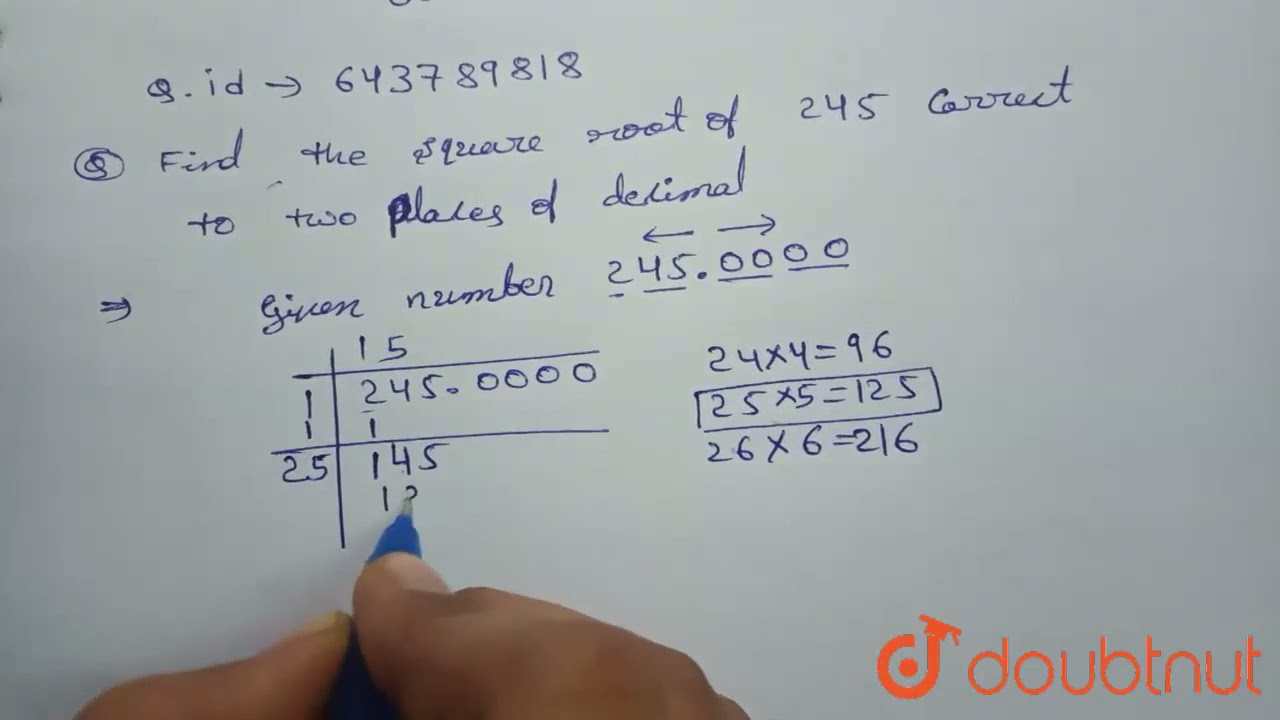 Q.id → 643789818
Q Find the square root of 245 correct
to two places of decimal
← →
⇒ Given number 245.0000
15
1 245.0000 24×4=96
1 1 25×5=125
25 145 26×6=216
12
doubtnut